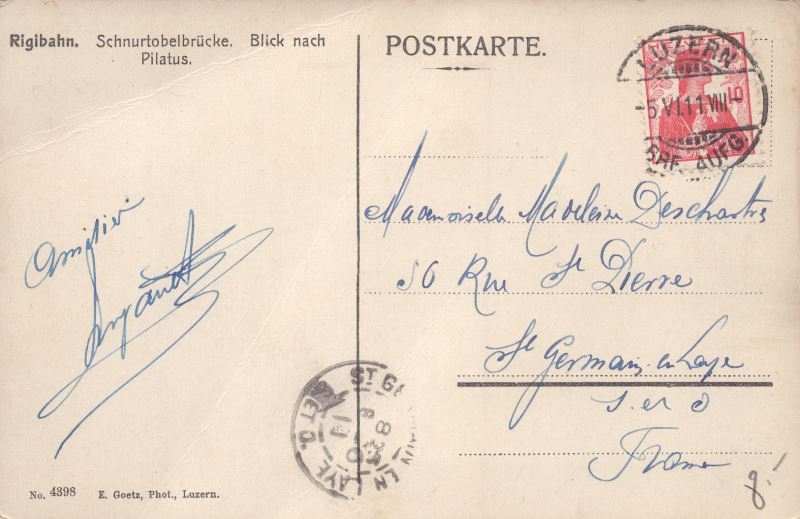 Rigibahn. Schnurtobelbrücke. Blick nach
Pilatus.
POSTKARTE.
10
LUZERN
-5.VI.11.VIII-
BRF. AUFG.
Amitiés
Mademoiselle Madeleine Deschartres
50 Rue St Pierre
St Germain en Laye
S. et O
France
ST GERMAIN EN LAYE
S. ET O.
No. 4398 E. Goetz, Phot., Luzern.